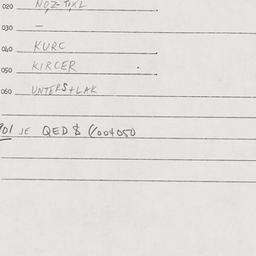 020 NOZ-TIXL
030 –
040 KURC
050 KIRCER
060 UNTERS+LAK
901 JE QED $ (004050